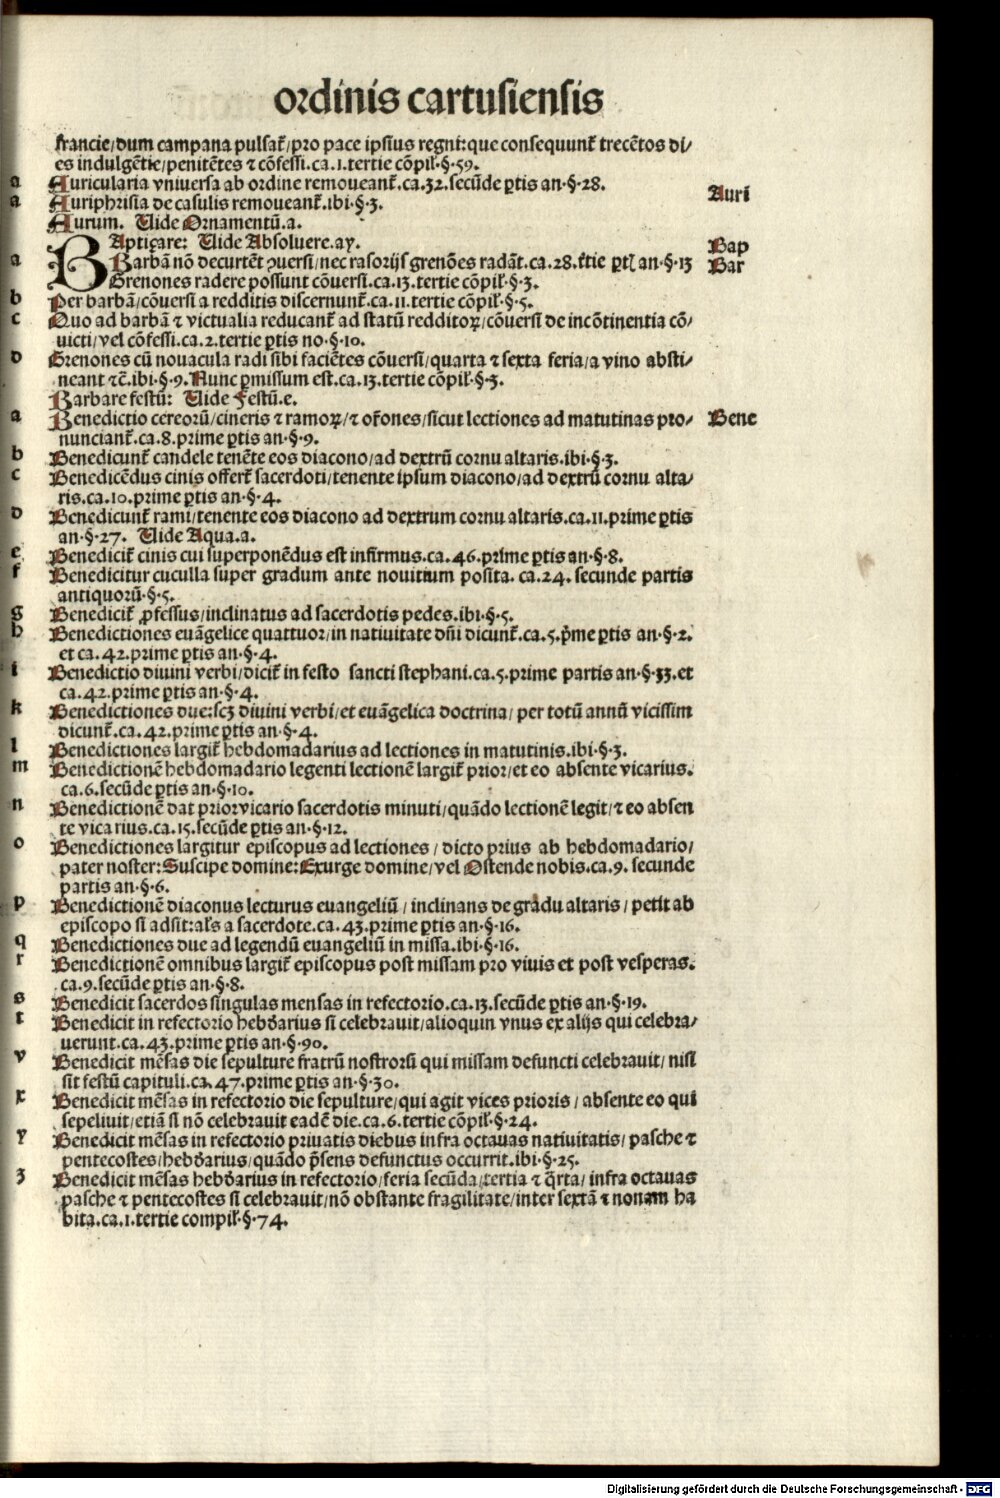 ordinis cartusiensis
francie/dum campana pulsat᷑/pro pace ipsius regni:que consequunt᷑ trecētos di/
es indulgētie/penitētes ⁊ cōfessi.ca.1.tertie cōpil᷑.§.59.
a Auricularia vniuersa ab ordine remoueant᷑.ca.32.secūde ꝑtis an.§.28. Auri
a Auriphrisia de casulis remoueant᷑.ibi.§.3.
Aurum. Uide Ornamentū.a.
BAptiçare: Uide Absoluere.ay. Bap
a Barbā nō decurtēt ꝯuersi/nec rasorijs grenōes radāt.ca.28.t᷑tie ꝑtꝭ an.§.13 Bar
Grenones radere possunt cōuersi.ca.13.tertie cōpil᷑.§.3.
b Per barbā/cōuersi a redditis discernunt᷑.ca.11.tertie cōpil᷑.§.5.
c Quo ad barbā ⁊ victualia reducant᷑ ad statū redditoꝝ/cōuersi de incōtinentia cō/
uicti/vel cōfessi.ca.2.tertie ꝑtis no.§.10.
d Grenones cū nouacula radi sibi faciētes cōuersi/quarta ⁊ sexta feria/a vino absti/
neant ⁊c̄.ibi.§.9.Nunc ꝑmissum est.ca.13.tertie cōpil᷑.§.3.
Barbare festū: Uide Festū.e.
a Benedictio cereorū/cineris ⁊ ramoꝝ/⁊ or̄ones/sicut lectiones ad matutinas pro/ Bene
nunciant᷑.ca.8.prime ꝑtis an.§.9.
b Benedicunt᷑ candele tenēte eos diacono/ad dextrū cornu altaris.ibi.§.3.
c Benedicēdus cinis offert᷑ sacerdoti/tenente ipsum diacono/ad dextrū cornu alta/
ris.ca.10.prime ꝑtis an.§.4.
d Benedicunt᷑ rami/tenente eos diacono ad dextrum cornu altaris.ca.11.prime ꝑtis
an.§.27. Uide Aqua.a.
e Benedicit᷑ cinis cui superponēdus est infirmus.ca.46.prime ꝑtis an.§.8.
f Benedicitur cuculla super gradum ante nouitium posita. ca.24. secunde partis
antiquorū.§.5.
g Benedicit᷑ ꝓfessus/inclinatus ad sacerdotis pedes.ibi.§.5.
h Benedictiones euāgelice quattuor/in natiuitate dn̄i dicunt᷑.ca.5.p̄me ꝑtis an.§.2.
et ca.42.prime ꝑtis an.§.4.
i Benedictio diuini verbi/dicit᷑ in festo sancti stephani.ca.5.prime partis an.§.33.et
ca.42.prime ꝑtis an.§.4.
k Benedictiones due:scꝫ diuini verbi/et euāgelica doctrina/ per totū annū vicissim
dicunt᷑.ca.42.prime ꝑtis an.§.4.
l Benedictiones largit᷑ hebdomadarius ad lectiones in matutinis.ibi.§.3.
m Benedictionē hebdomadario legenti lectionē largit᷑ prior/et eo absente vicarius.
ca.6.secūde ꝑtis an.§.10.
n Benedictionē dat prior vicario sacerdotis minuti/quādo lectionē legit/⁊ eo absen
te vicarius.ca.15.secūde ꝑtis an.§.12.
o Benedictiones largitur episcopus ad lectiones / dicto prius ab hebdomadario/
pater noster:Suscipe domine:Exurge domine/vel Ostende nobis.ca.9. secunde
partis an.§.6.
p Benedictionē diaconus lecturus euangeliū / inclinans de gradu altaris / petit ab
episcopo si adsit:al̄s a sacerdote.ca.43.prime ꝑtis an.§.16.
q Benedictiones due ad legendū euangeliū in missa.ibi.§.16.
r Benedictionē omnibus largit᷑ episcopus post missam pro viuis et post vesperas.
ca.9.secūde ꝑtis an.§.8.
s Benedicit sacerdos singulas mensas in refectorio.ca.13.secūde ꝑtis an.§.19.
t Benedicit in refectorio hebd̄arius si celebrauit/alioquin vnus ex alijs qui celebra/
uerunt.ca.43.prime ꝑtis an.§.90.
v Benedicit mēsas die sepulture fratrū nostrorū qui missam defuncti celebrauit/ nisi
sit festū capituli.ca.47.prime ꝑtis an.§.30.
x Benedicit mēsas in refectorio die sepulture/qui agit vices prioris / absente eo qui
sepeliuit/etiā si nō celebrauit eadē die.ca.6.tertie cōpil᷑.§.24.
y Benedicit mēsas in refectorio priuatis diebus infra octauas natiuitatis/ pasche ⁊
pentecostes/hebd̄arius/quādo p̄sens defunctus occurrit.ibi.§.25.
z Benedicit mēsas hebd̄arius in refectorio/feria secūda/tertia ⁊ q̄rta/ infra octauas
pasche ⁊ pentecostes si celebrauit/nō obstante fragilitate/inter sextā ⁊ nonam ha
bita.ca.1.tertie compil᷑.§.74.
Digitalisierung gefördert durch die Deutsche Forschungsgemeinschaft - DFG